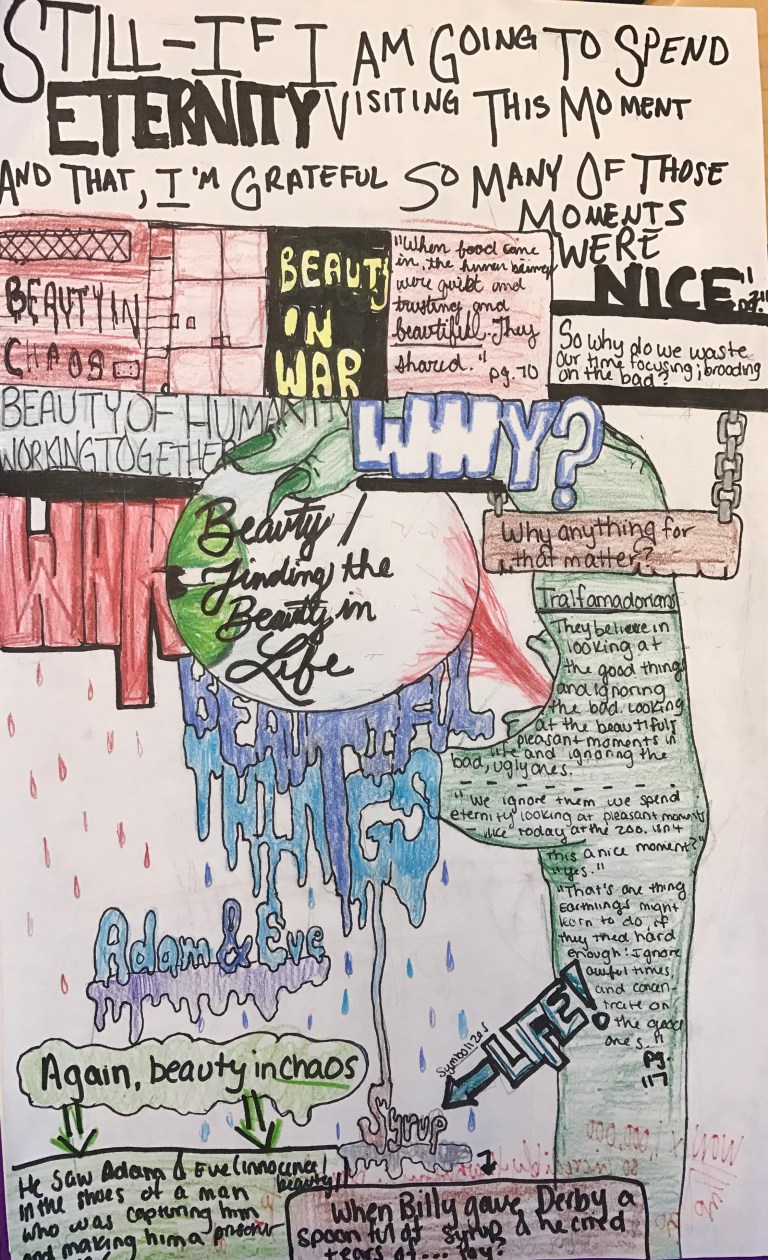 STILL-IF I AM GOING TO SPEND
ETERNITY VISITING THIS MOMENT
AND THAT, I'M GRATEFUL SO MANY OF THOSE
MOMENTS
WERE
NICE"
BEAUTY IN
CHAOS
BEAUTY
IN
WAR
"When food came
in, the human beings
were quiet and
trusting and
beautiful. They
shared."
pg. 70
So why do we waste
our time focusing; brooding
on the bad?
BEAUTY OF HUMANITY
WORKING TOGETHER
WHY?
Why anything for
that matter?
WAR
Beauty/
Finding the
Beauty in
Life
BEAUTIFUL
THINGS
Tralfamadorians
They believe in
looking at
the good things
and ignoring
the bad. Looking
at the beautiful;
pleasant moments in
life and ignoring the
bad, ugly ones.
"We ignore them we spend
eternity looking at pleasant moments
- like today at the zoo. isn't
this a nice moment?"
"yes."
"That's one thing
Earthlings might
learn to do, if
they tried hard
enough: Ignore
awful times
and concen-
trate on
the good
ones."
pg.
117
Adam & Eve
Again, beauty in chaos
Symbolizes
LIFE!
Syrup
He saw Adam & Eve (innocence/
beauty)
in the shoes of a man
who was capturing him
and making him a prisoner
When Billy gave Derby a
spoonful of syrup & he cried
tears of... joy.